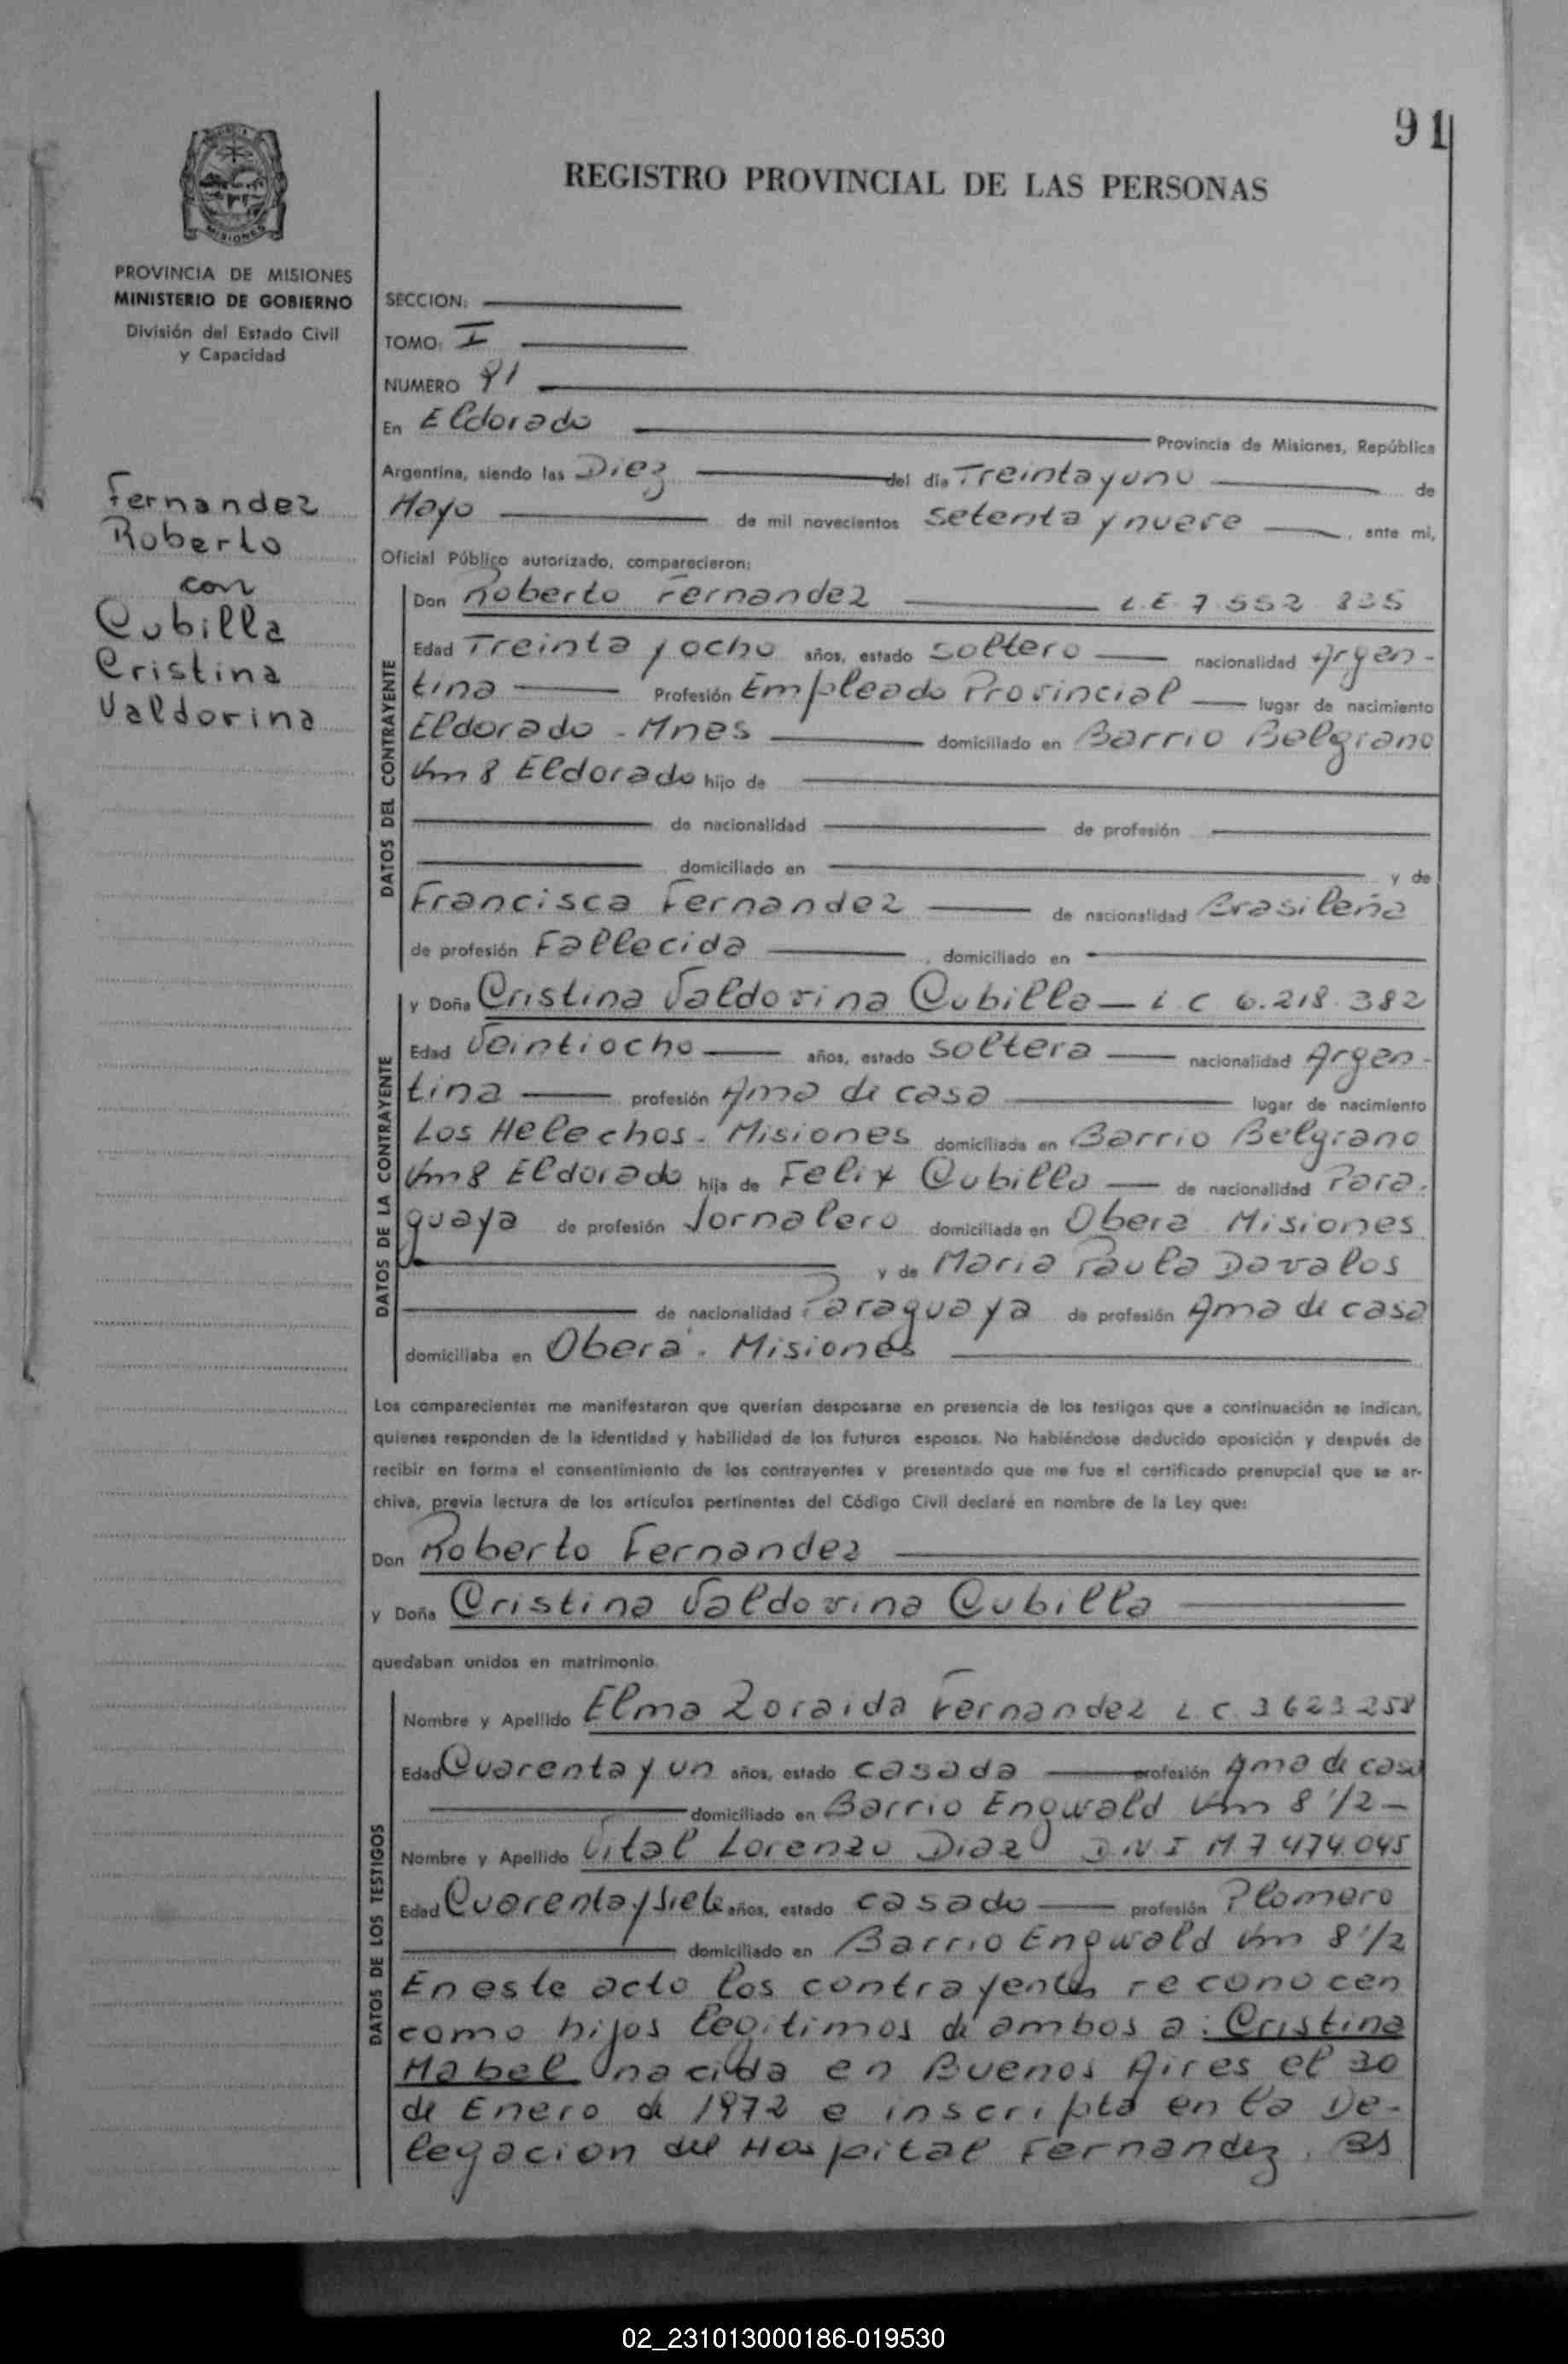 91
REGISTRO PROVINCIAL DE LAS PERSONAS
MISIONES
PROVINCIA DE MISIONES
MINISTERIO DE GOBIERNO
División del Estado Civil
y Capacidad
Fernandez
Roberto
con
Cubilla
Cristina
Valdorina
SECCION:
TOMO: I
NUMERO 91
En Eldorado Provincia de Misiones, República
Argentina, siendo las Diez del día Treinta y uno de
Mayo de mil novecientos setenta y nueve, ante mi,
Oficial Público autorizado, comparecieron:
DATOS DEL CONTRAYENTE
Don Roberto Fernandez L.E 7.552.835
Edad Treinta y ocho años, estado soltero nacionalidad Argen-
tina Profesión Empleado Provincial lugar de nacimiento
Eldorado - Mnes domiciliado en Barrio Belgrano
Km 8 Eldorado hijo de
de nacionalidad de profesión
domiciliado en y de
Francisca Fernandez de nacionalidad Brasileña
de profesión Fallecida, domiciliado en
DATOS DE LA CONTRAYENTE
y Doña Cristina Valdorina Cubilla - L C 6.218.382
Edad Veintiocho años, estado soltera nacionalidad Argen-
tina profesión Ama de casa lugar de nacimiento
Los Helechos - Misiones domiciliada en Barrio Belgrano
Km 8 Eldorado hija de Felix Cubilla de nacionalidad Para-
guaya de profesión Jornalero domiciliada en Oberá Misiones
y de Maria Paula Davalos
de nacionalidad Paraguaya de profesión Ama de casa
domiciliaba en Oberá - Misiones
Los comparecientes me manifestaron que querían desposarse en presencia de los testigos que a continuación se indican,
quienes responden de la identidad y habilidad de los futuros esposos. No habiéndose deducido oposición y después de
recibir en forma el consentimiento de los contrayentes y presentado que me fue el certificado prenupcial que se ar-
chiva, previa lectura de los artículos pertinentes del Código Civil declaré en nombre de la Ley que:
Don Roberto Fernandez
y Doña Cristina Valdorina Cubilla
quedaban unidos en matrimonio.
DATOS DE LOS TESTIGOS
Nombre y Apellido Elma Zoraida Fernandez L.C. 3623258
Edad Cuarenta y un años, estado casada profesión Ama de casa
domiciliado en Barrio Engwald Km 8 1/2 -
Nombre y Apellido Vital Lorenzo Diaz D.N.I M 7 474.045
Edad Cuarenta y siete años, estado casado profesión Plomero
domiciliado en Barrio Engwald Km 8 1/2
En este acto los contrayentes reconocen
como hijos legitimos de ambos a: Cristina
Mabel nacida en Buenos Aires el 30
de Enero de 1972 e inscripta en la De-
legacion del Hospital Fernandez. Bs
02_231013000186-019530